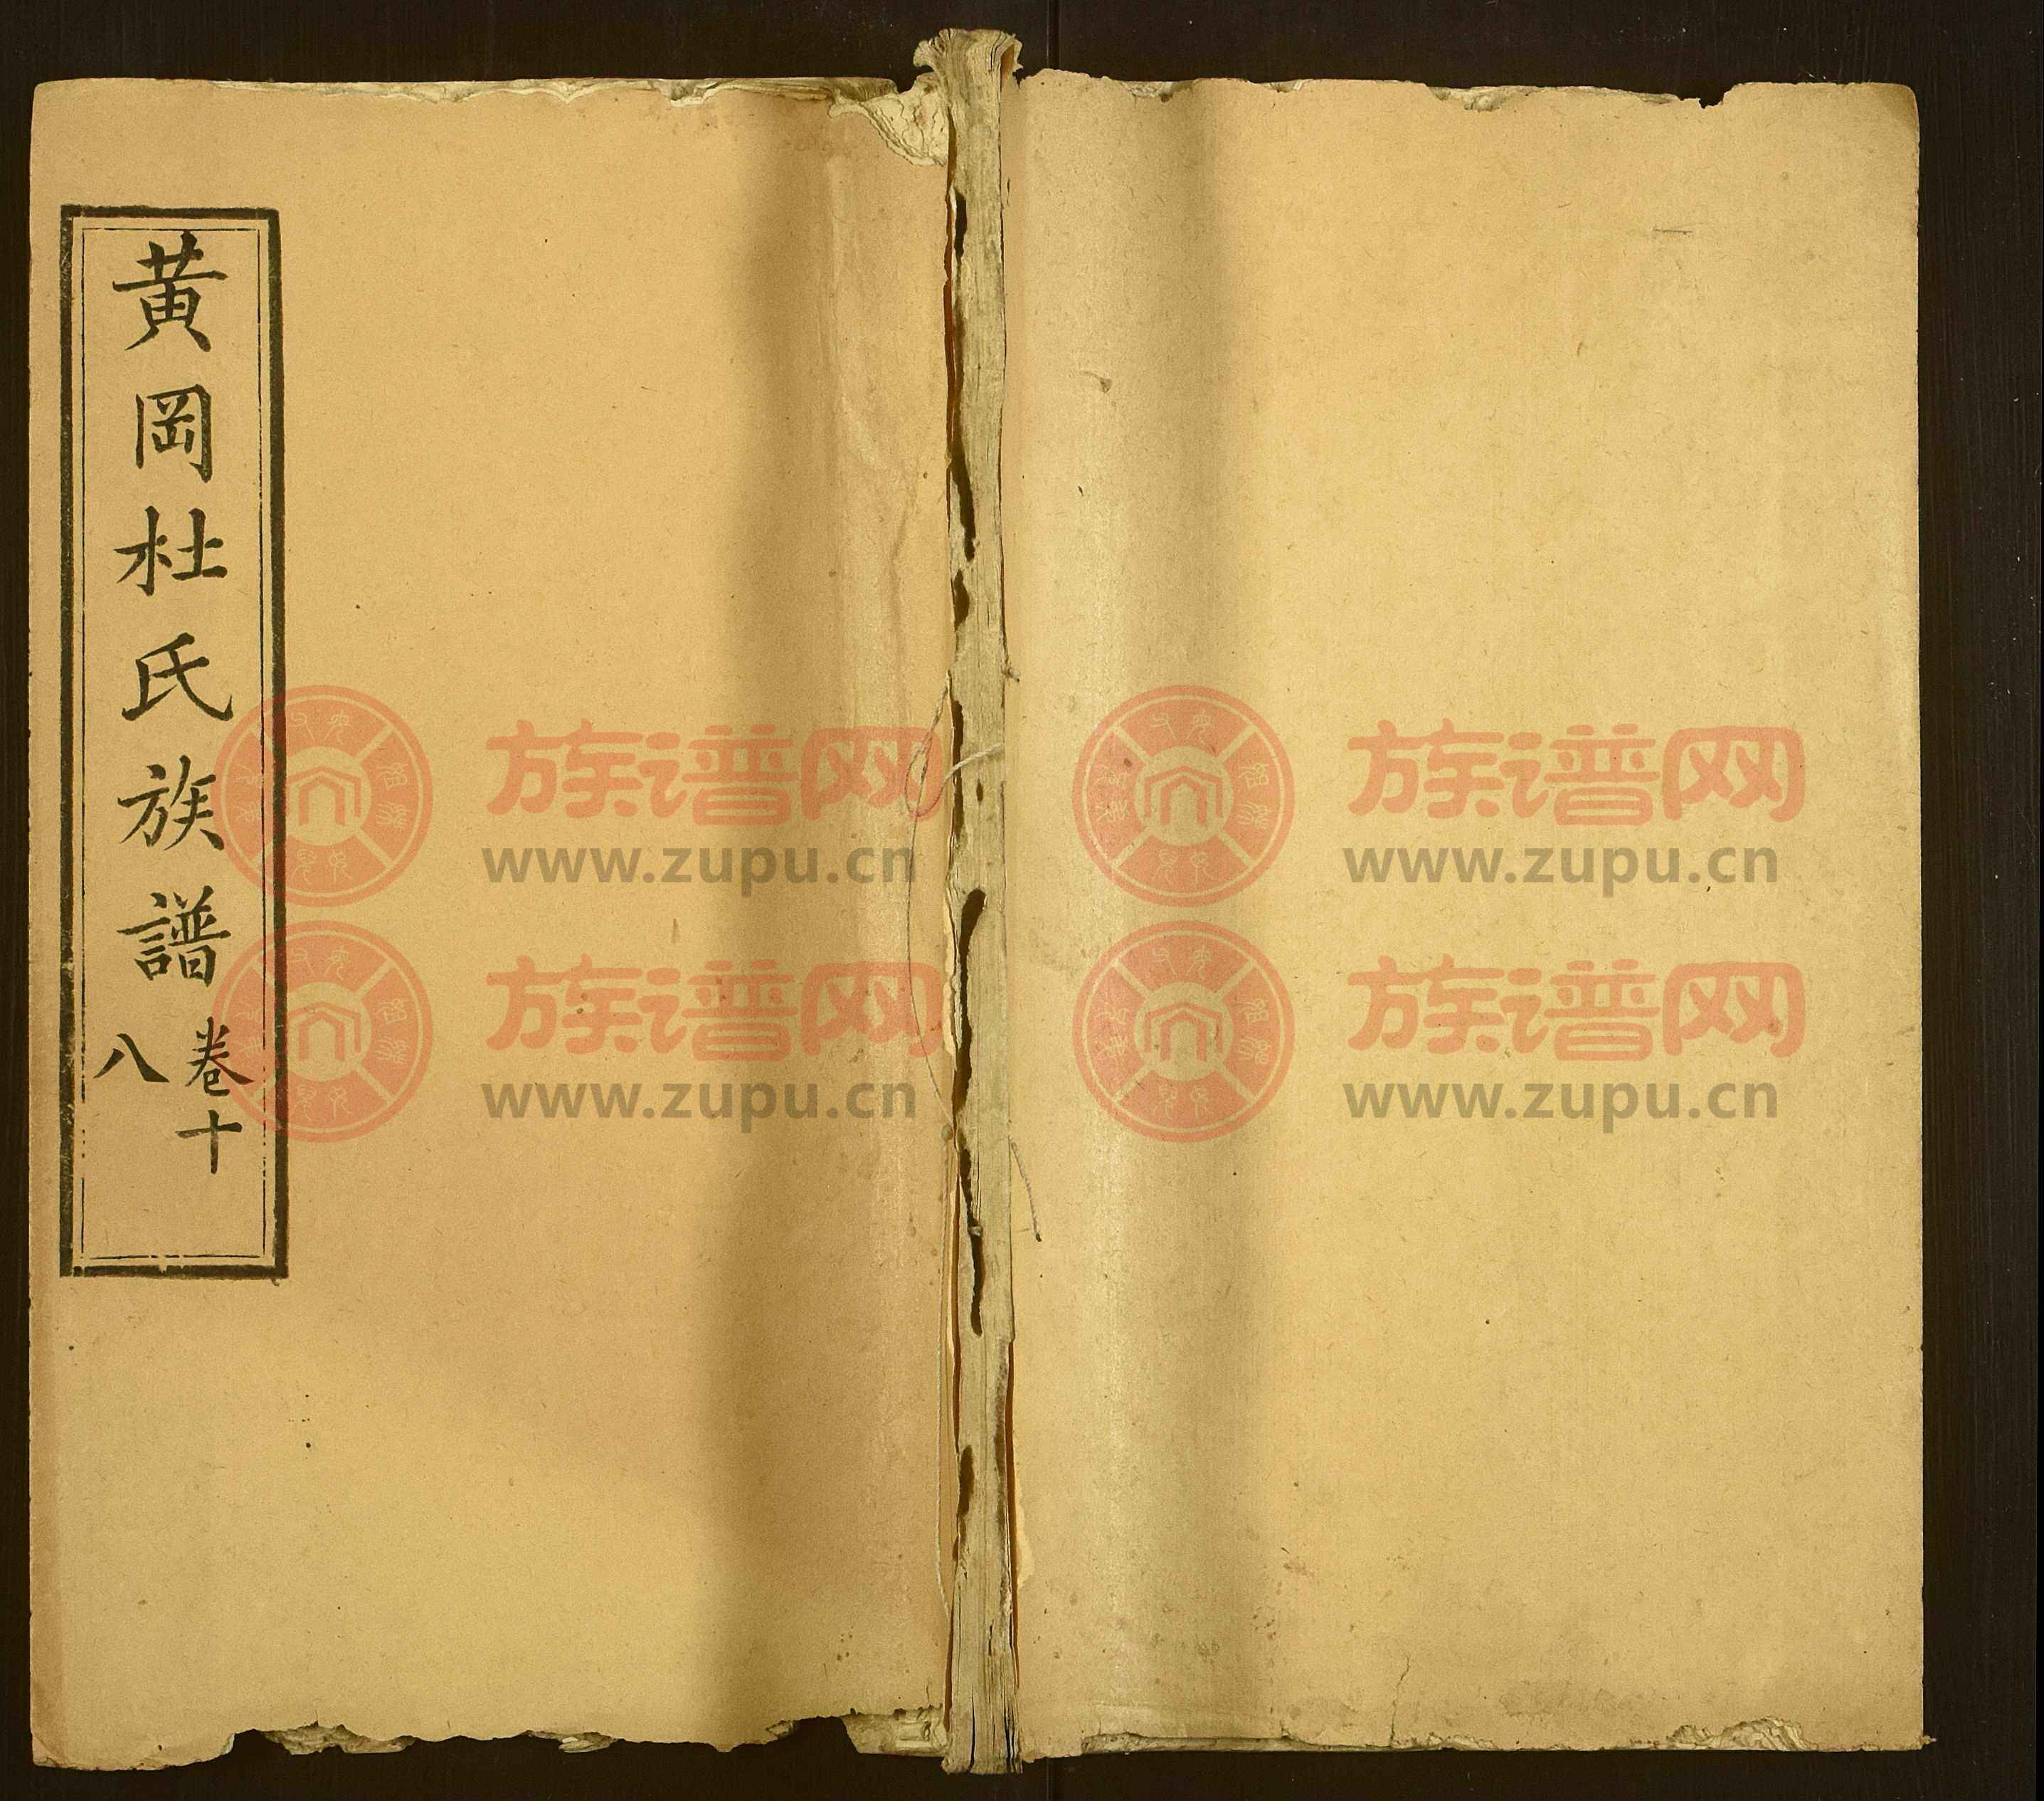 黃岡杜氏族譜
卷十
八
族谱网
www.zupu.cn
族谱网
www.zupu.cn
族谱网
www.zupu.cn
族谱网
www.zupu.cn